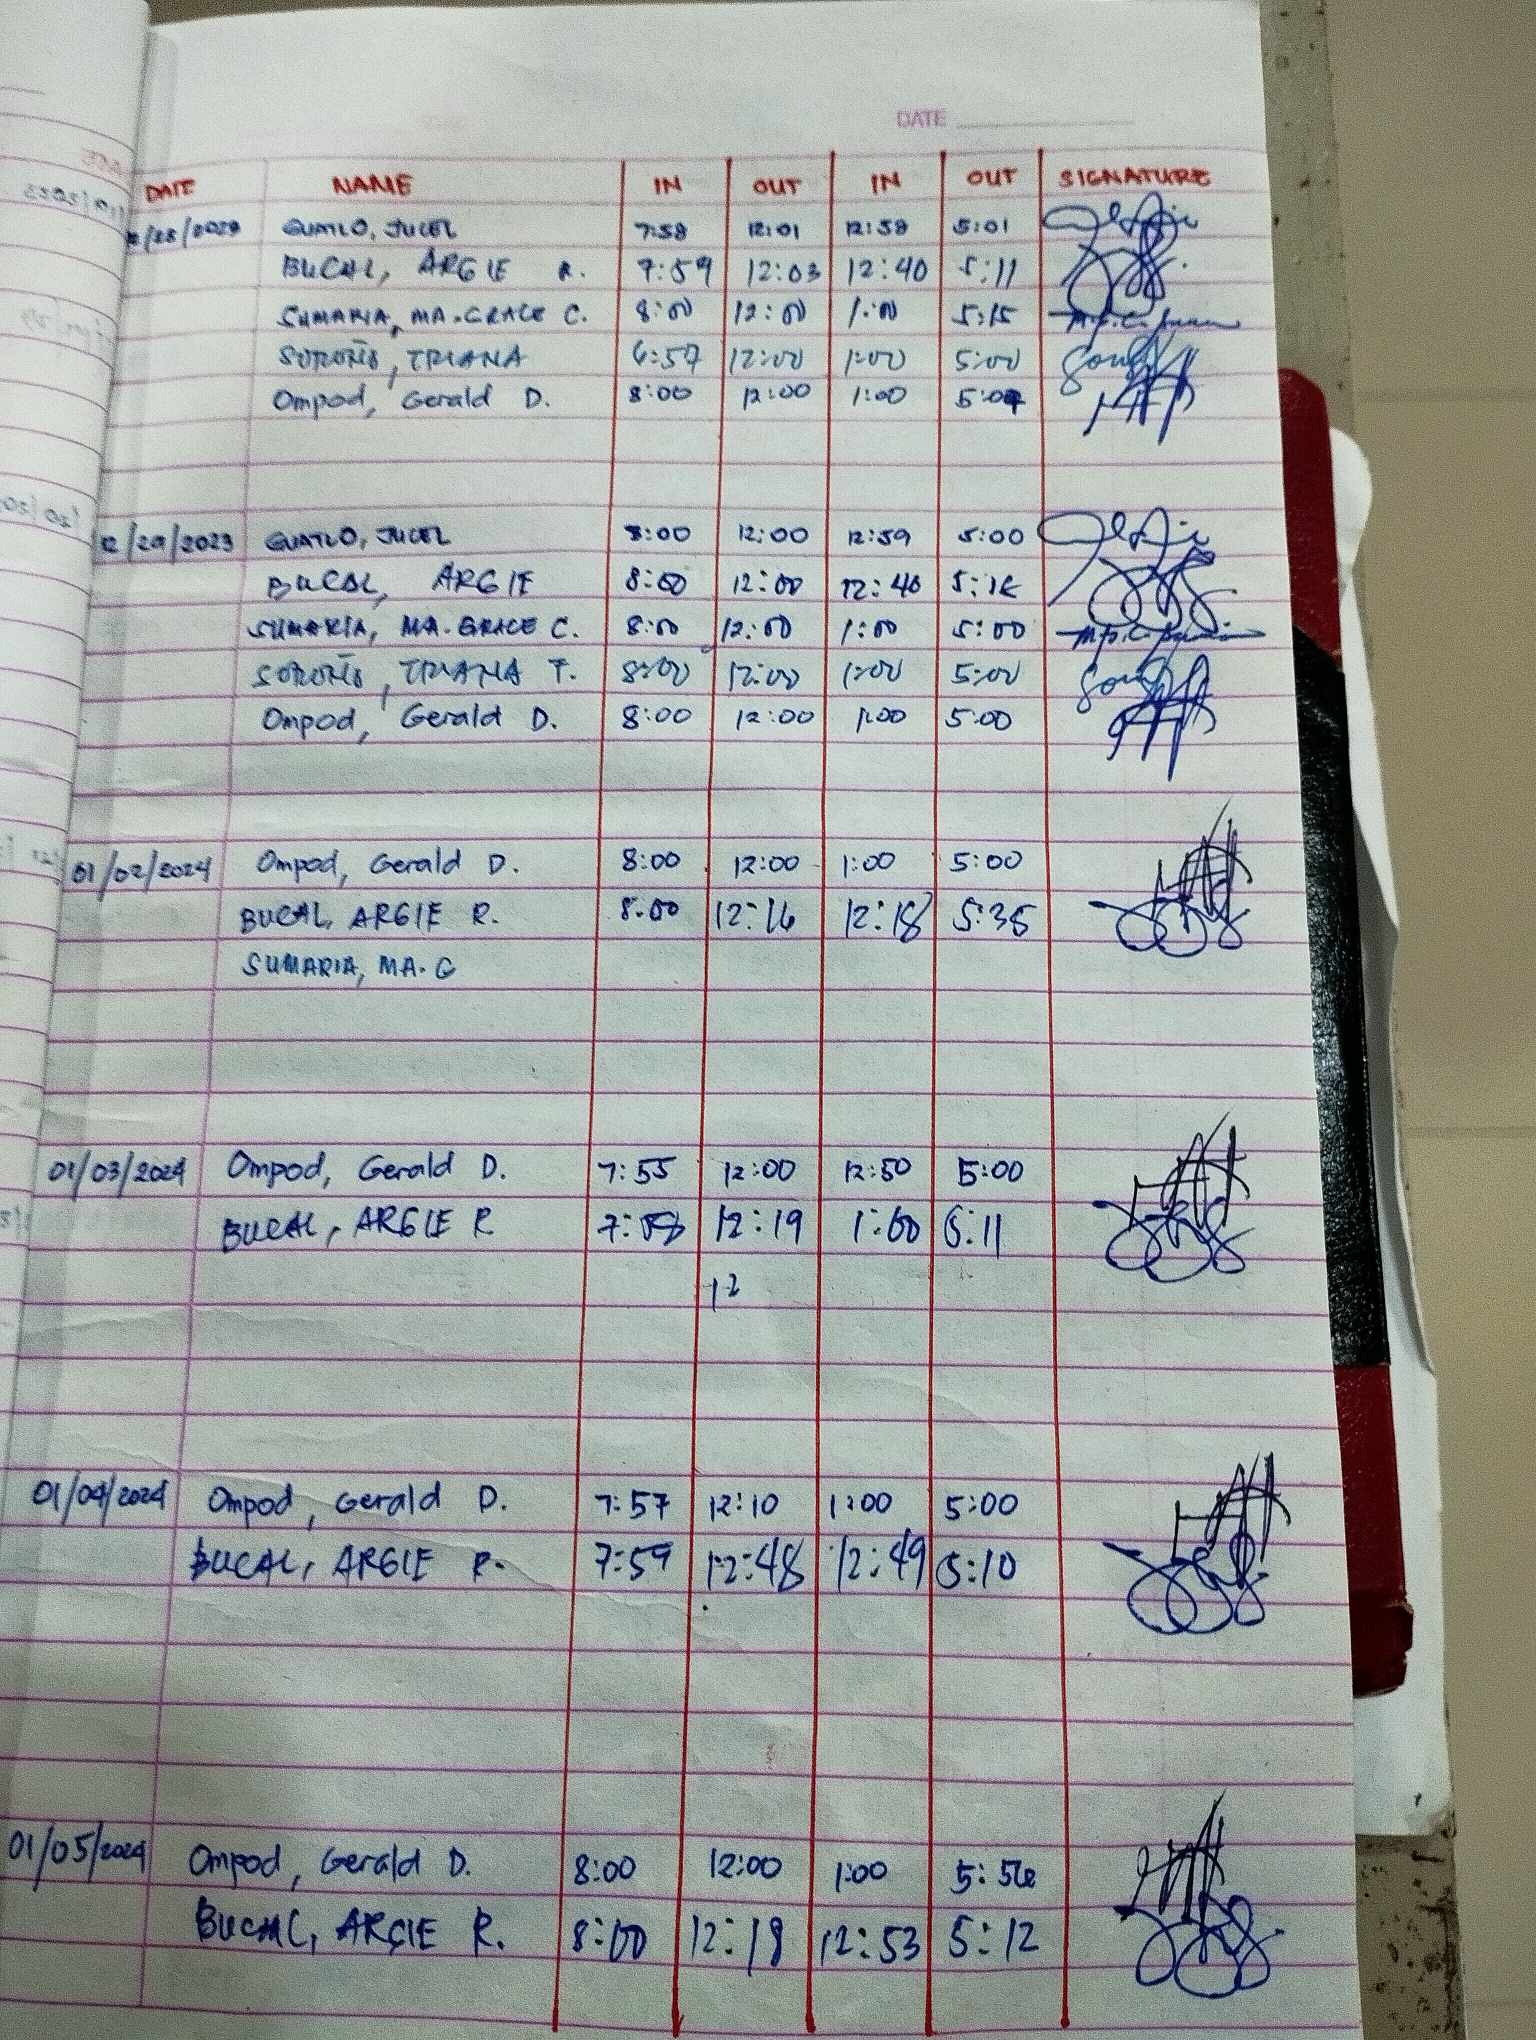 DATE
DATE NAME IN OUT IN OUT SIGNATURE
12/28/2023 GUATLO, JUCEL 7:58 12:01 12:58 5:01
BUCAL, ARGIE R. 7:59 12:03 12:40 5:11
SUMARIA, MA. GRACE C. 8:00 12:00 1:00 5:15
SOROÑO, TRIANA 6:57 12:00 1:00 5:00
Ompod, Gerald D. 8:00 12:00 1:00
12/29/2023 GUATLO, JUCEL 8:00 12:00 12:59 5:00
BUCAL, ARGIE 8:00 12:00 12:40
SUMARIA, MA. GRACE C. 8:00 12:00 1:00 5:00
SOROÑO, TRIANA T. 8:00 12:00 1:00 5:00
Ompod, Gerald D. 8:00 12:00 1:00 5:00
01/02/2024 Ompod, Gerald D. 8:00 12:00 1:00 5:00
BUCAL, ARGIE R. 8:00 12:16 12:18 5:35
SUMARIA, MA. G
01/03/2024 Ompod, Gerald D. 7:55 12:00 12:50 5:00
BUCAL, ARGIE R 7:58 12:19 1:00 5:11
12
01/04/2024 Ompod, Gerald D. 7:57 12:10 1:00 5:00
BUCAL, ARGIE R. 7:59 12:48 12:49 5:10
01/05/2024 Ompod, Gerald D. 8:00 12:00 1:00 5:56
BUCAL, ARGIE R. 8:00 12:18 12:53 5:12